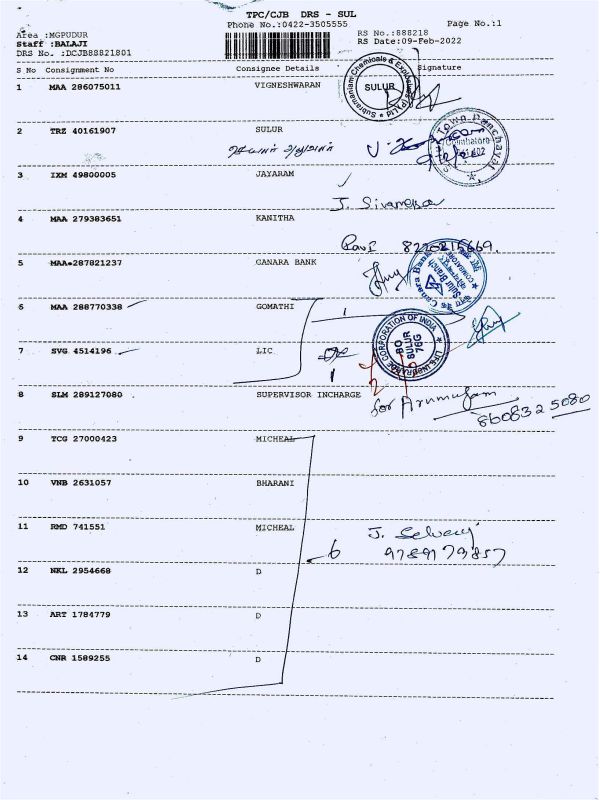 TPC/CJB DRS - SUL
Phone No.:0422-3505555 Page No.:1
Area :MGPUDUR RS No.:888218
Staff :BALAJI RS Date:09-Feb-2022
DRS No. :DCJB88821801
S No Consignment No Consignee Details Signature
1 MAA 286075011 VIGNESHWARAN
Subramaniam Chemicals & Explosives (P) Ltd
SULUR
2 TRZ 40161907 SULUR
Town Panchayat
Coimbatore
3 IXM 49800005 JAYARAM
J. Sivamekar
4 MAA 279383651 KANITHA
Ravi 8220215669.
5 MAA 287821237 CANARA BANK
Canara Bank
Sulur Branch
6 MAA 288770338 GOMATHI
1
LIFE INSURANCE CORPORATION OF INDIA
BO
SULUR
76G
7 SVG 4514196 LIC
8 SLM 289127080 SUPERVISOR INCHARGE
for Arumugam
8608325080
9 TCG 27000423 MICHEAL
10 VNB 2631057 BHARANI
11 RMD 741551 MICHEAL
J. Selvaraj
6 9789179857
12 NKL 2954668 D
13 ART 1784779 D
14 CNR 1589255 D